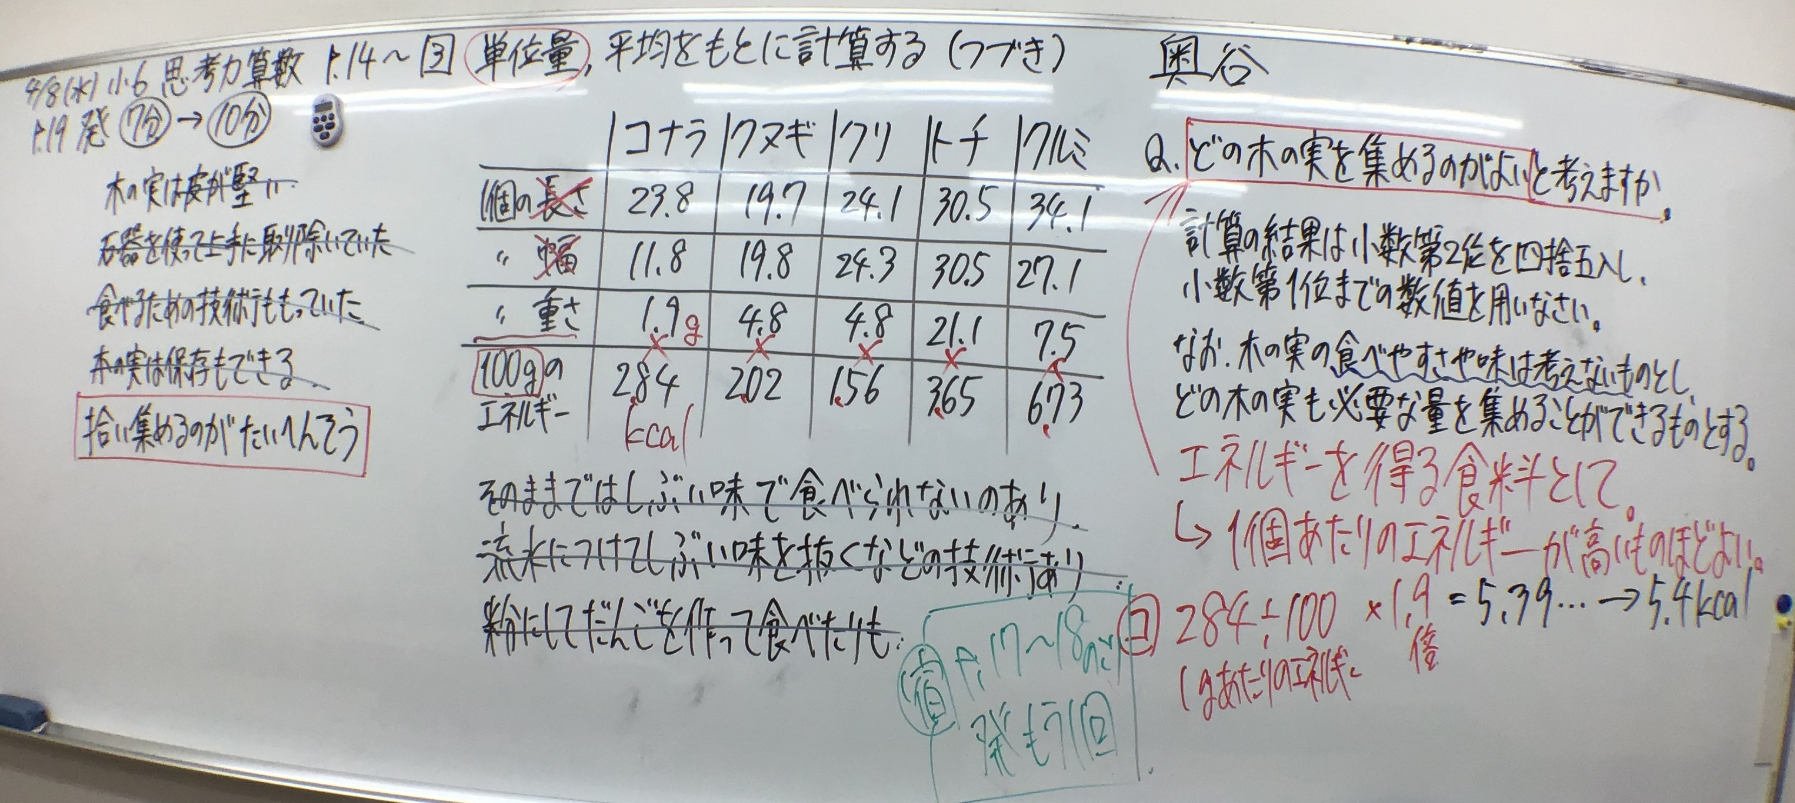 4/8(水) 小6 思考力算数 P.14〜 ③ 単位量, 平均をもとに計算する (つづき)
奥谷
P.19 発 7分→10分
木の実は皮が堅い
石器を使って上手に取り除いていた
食べるための技術ももっていた
木の実は保存もできる
拾い集めるのがたいへんそう
コナラ クヌギ クリ トチ クルミ
1個の長さ 23.8 19.7 24.1 30.5 34.1
〃 幅 11.8 19.8 24.3 30.5 27.1
〃 重さ 1.9g 4.8 4.8 21.1 7.5
× × × × ×
100gの 284 202 156 365 673
エネルギー kcal
そのままではしぶい味で食べられないのあり.
流水につけてしぶい味を抜くなどの技術あり
粉にしてだんごを作って食べたりも.
宿 P.17〜18
発もう1回
Q. どの木の実を集めるのがよいと考えますか。
計算の結果は小数第2位を四捨五入し、
小数第1位までの数値を用いなさい。
なお、木の実の食べやすさや味は考えないものとし、
どの木の実も必要な量を集めることができるものとする。
エネルギーを得る食料として。
↳ 1個あたりのエネルギーが高いものほどよい。
コ 284÷100 ×1.9 = 5.39… → 5.4kcal
1gあたりのエネルギー 倍